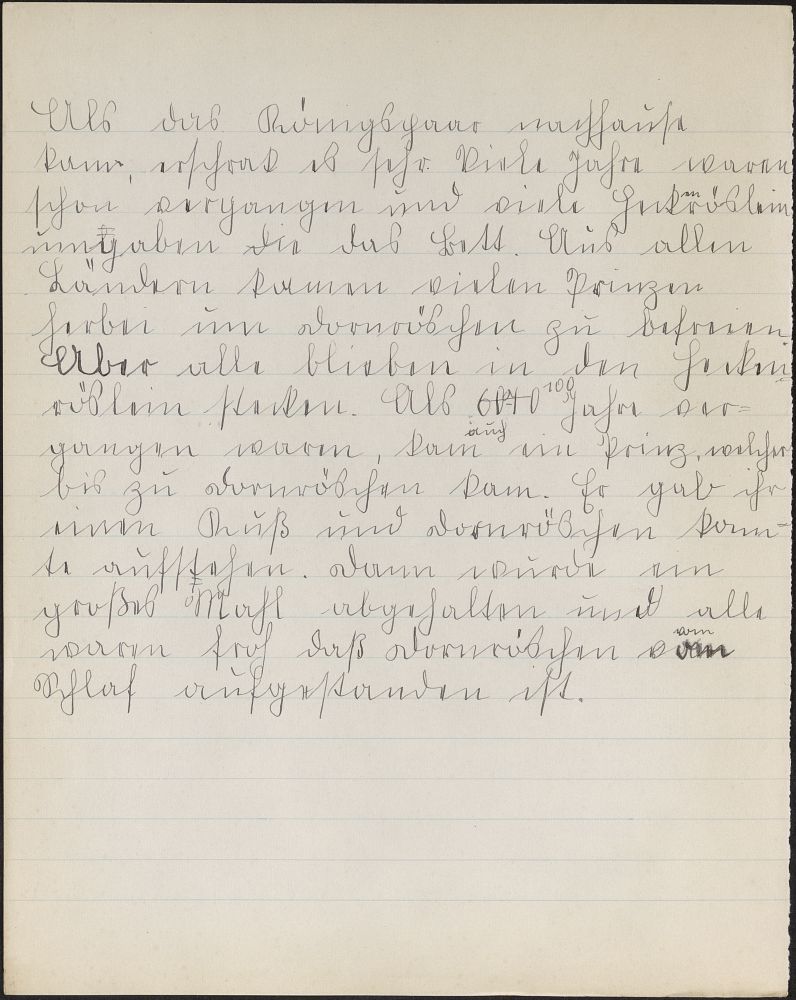 Als das Königspaar nachhause
kam, erschrak es sehr. Viele Jahre waren
schon vergangen und viele Heckenröslein
umgaben die das Bett. Aus allen
Ländern kamen vielen Prinzen
herbei um Dornröschen zu befreien.
Aber alle blieben in den Hecken
röslein stecken. Als 100 Jahre ver=
gangen waren, kam auch ein Prinz, welcher
bis zu Dornröschen kam. Er gab ihr
einen Kuß und Dornröschen konn=
te aufstehen. Dann wurde ein
großes Mahl abgehalten und alle
waren froh daß Dornröschen vom
Schlaf aufgestanden ist.